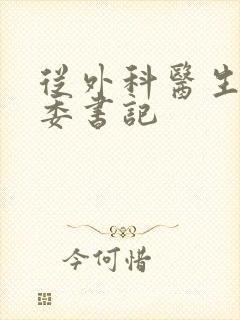 從外科醫生
委書記
今何惜